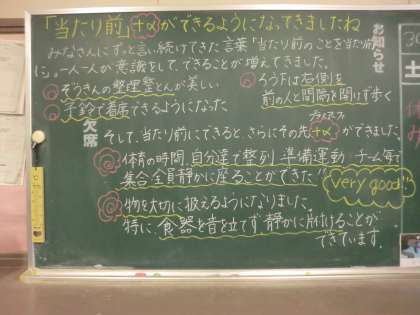 「当たり前」+αができるようになってきましたね
みなさんにずっと言い続けてきた言葉「当たり前のことを当たり前
に」。一人一人が意識をして、できることが増えてきました。
ぞうきんの整理整とんが美しい
ろう下は右側を
前の人と間隔を開けず歩く
予鈴で着席できるようになった
そして、当たり前にできると、さらにその先+αができました。
プラスアルファ
体育の時間、自分達で整列 準備運動 チーム毎で
集合全員静かに座ることができた
very good
物を大切に扱えるようになりました。
特に、食器を音を立てず静かに片付けることが
できています。
お知らせ
欠席
30
土